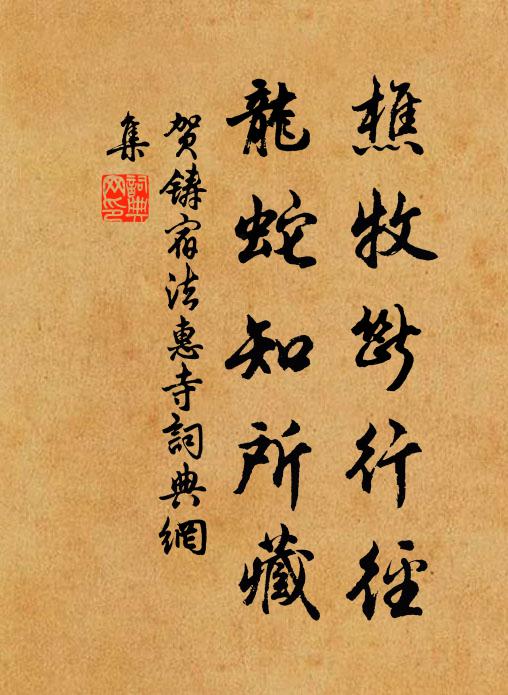 樵牧斷行徑
龍蛇知所藏
賀鑄宿法惠寺詞典網
集
詞典
网印